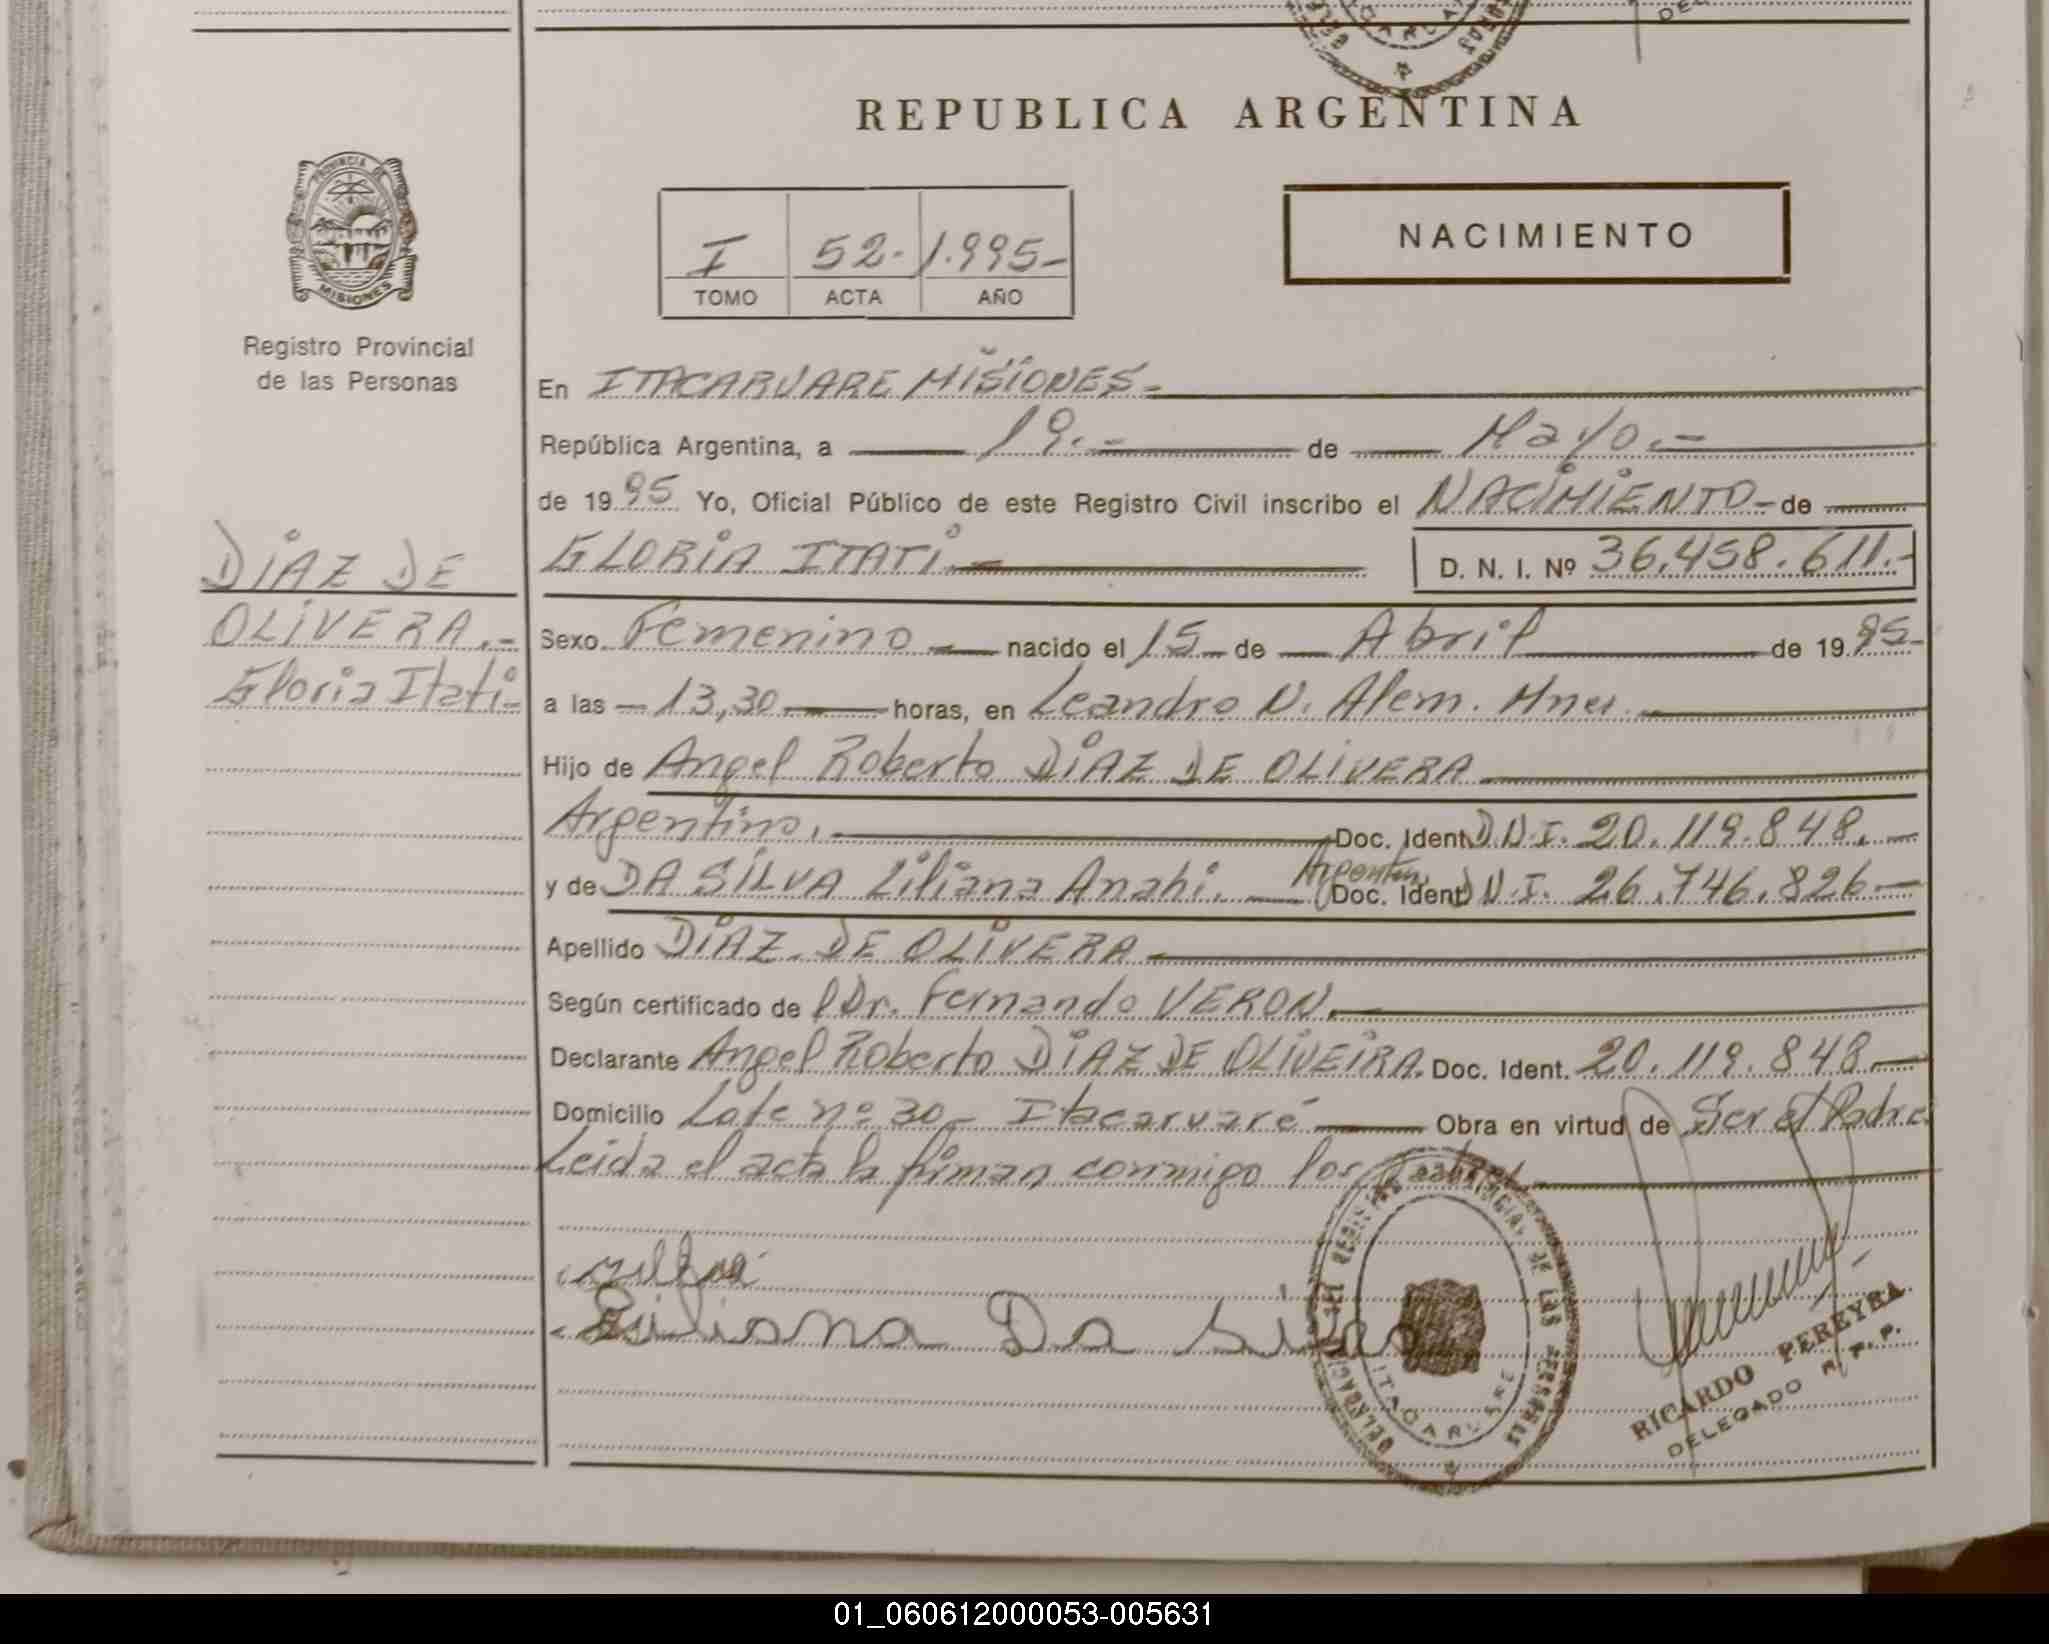 REPUBLICA ARGENTINA
PROVINCIA DE
MISIONES
Registro Provincial
de las Personas
I 52.- 1.995-
TOMO ACTA AÑO
NACIMIENTO
En ITACARUARE MISIONES.-
República Argentina, a 19.- de Mayo.-
de 1995 Yo, Oficial Público de este Registro Civil inscribo el NACIMIENTO- de
DIAZ DE
OLIVERA.-
Gloria Itati-
GLORIA ITATI.- D. N. I. Nº 36.458.611.-
Sexo. Femenino - nacido el 15 - de - Abril de 1995-
a las - 13,30 - horas, en Leandro N. Alem. Mnes.
Hijo de Angel Roberto DIAZ DE OLIVERA
Argentino. Doc. Ident. D.N.I. 20.119.848.-
y de DA SILVA Liliana Anahi. - Argentina Doc. Ident. D.N.I. 26.746.826.-
Apellido DIAZ. DE OLIVERA
Según certificado de l Dr. Fernando VERON.
Declarante Angel Roberto DIAZ DE OLIVEIRA. Doc. Ident. 20.119.848.-
Domicilio Lote nº 30- Itacaruaré Obra en virtud de Ser el Padre
Leida el acta la firman conmigo los Padres
Liliana Da Silva
DELEGACION DEL REGISTRO PROVINCIAL DE LAS PERSONAS
ITACARUARE
RICARDO PEREYRA
DELEGADO R. P. P.
01_060612000053-005631